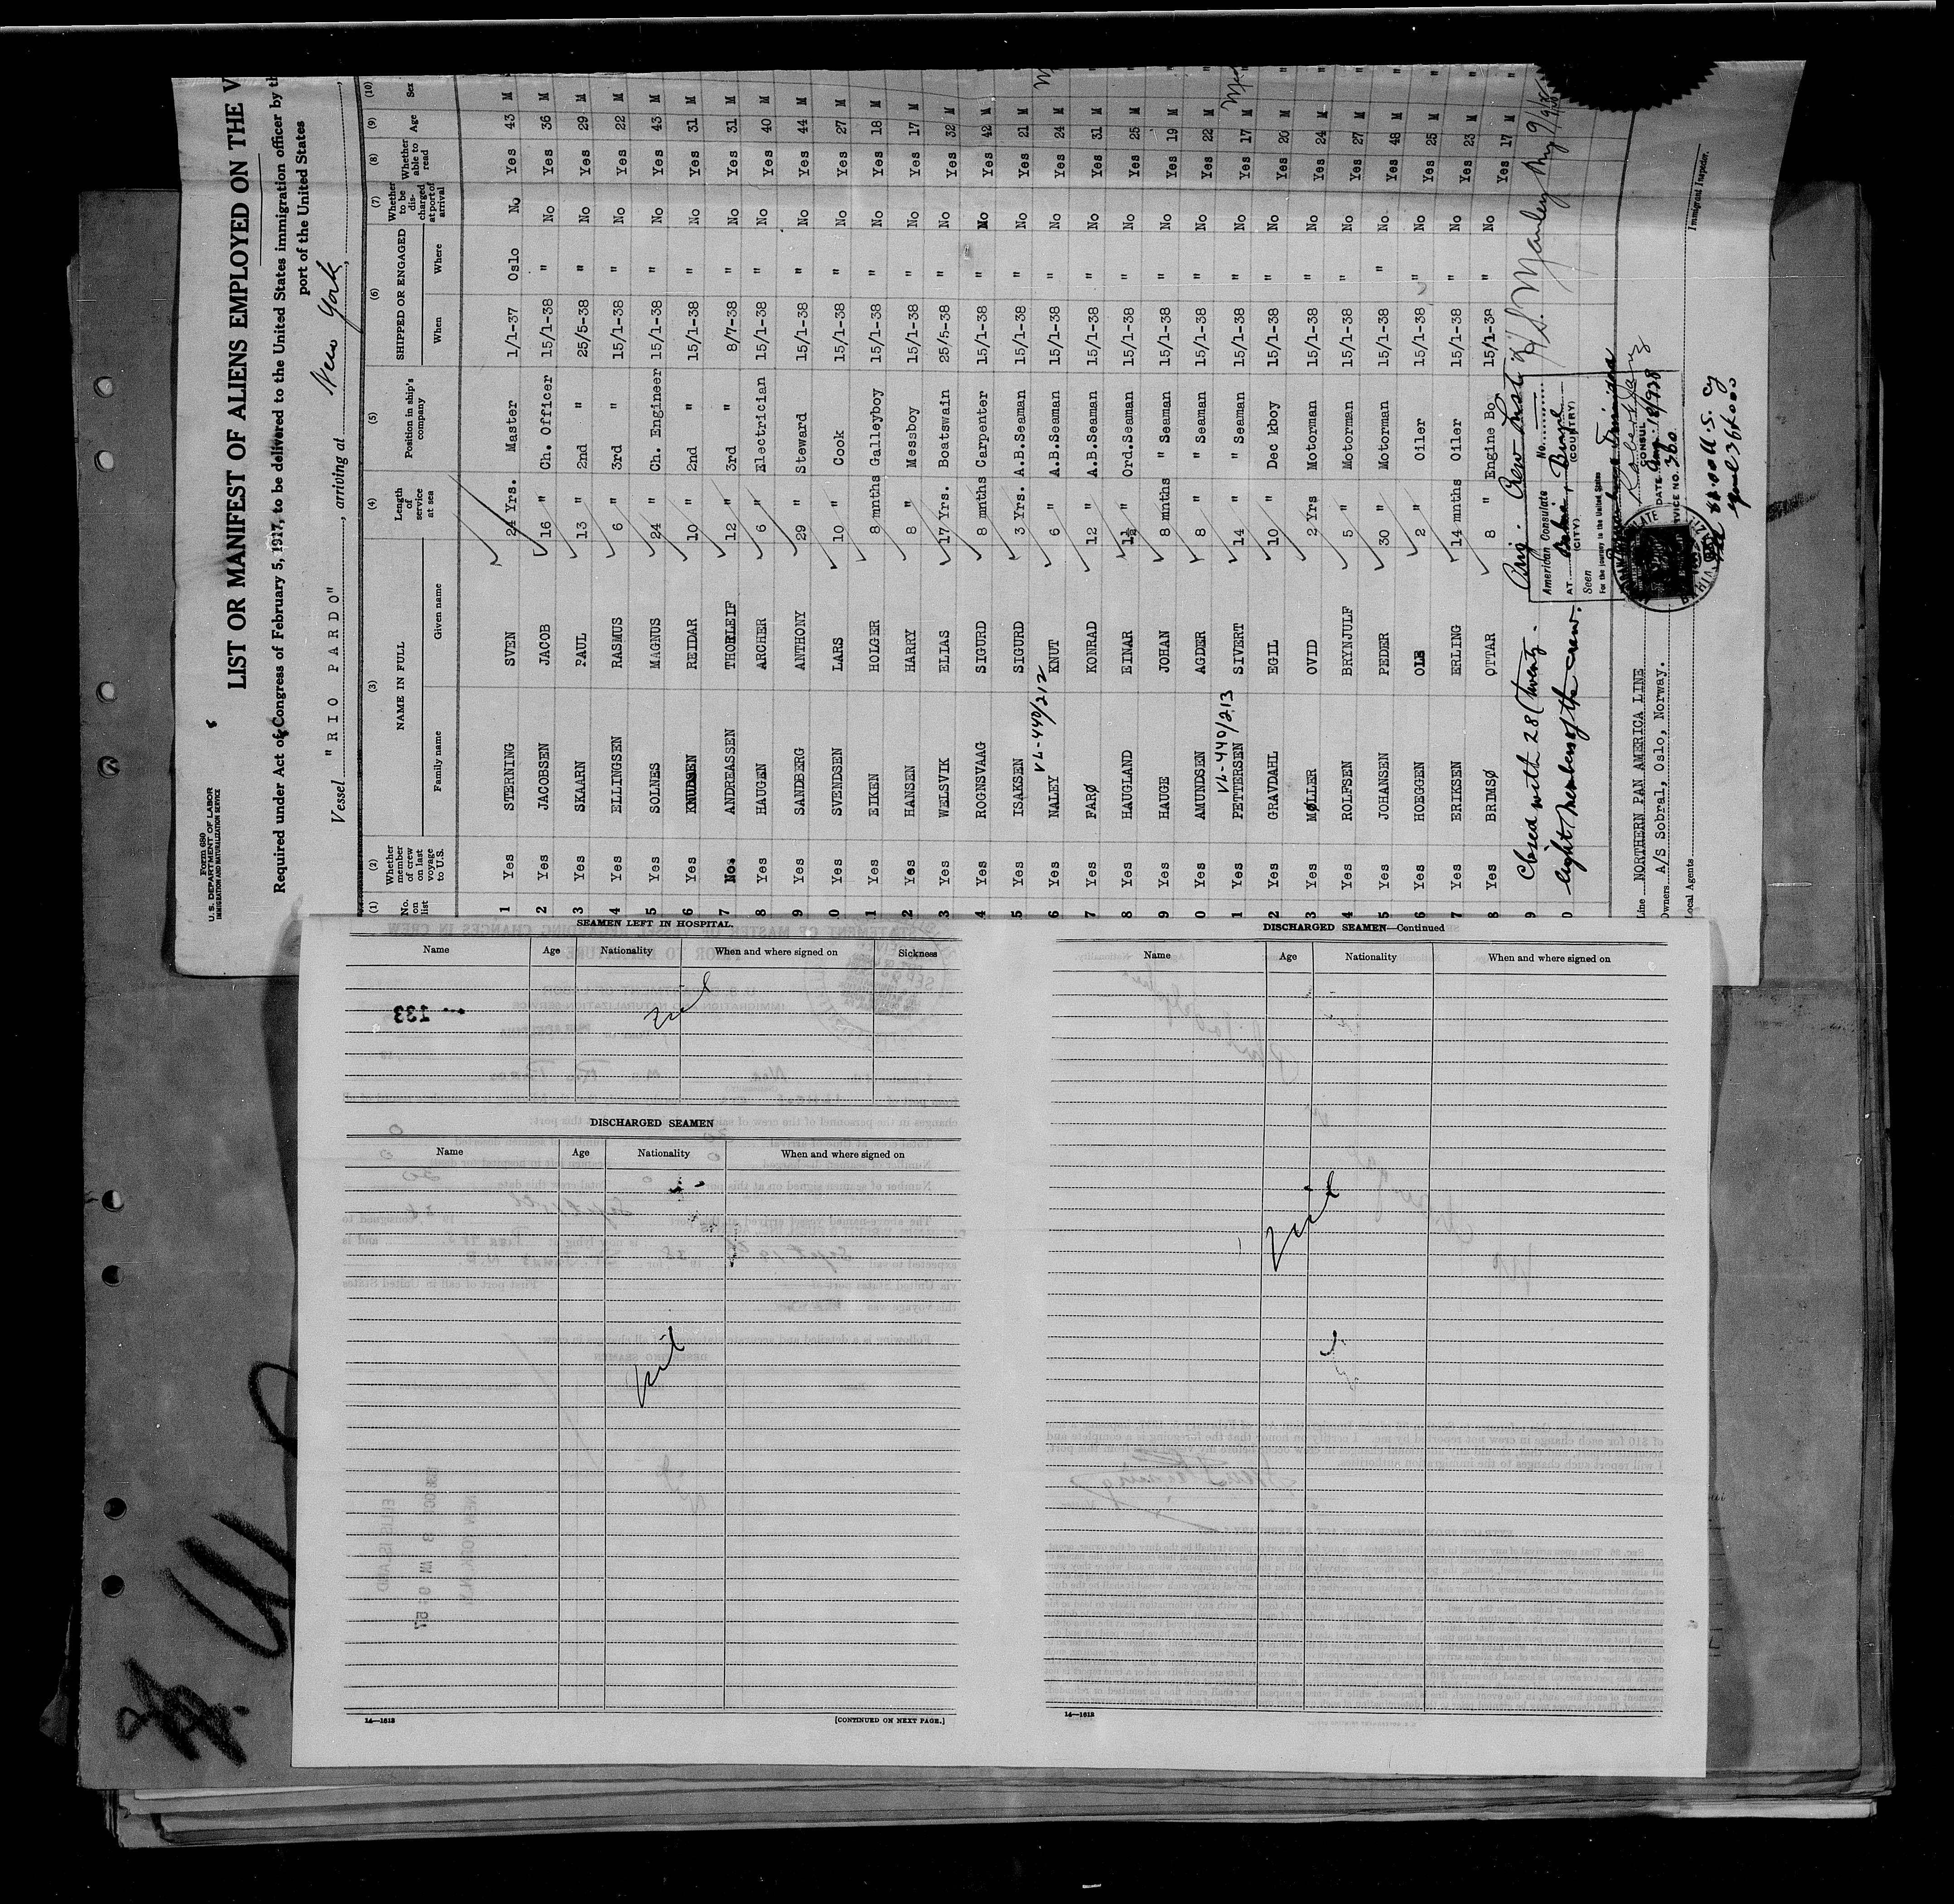 Form 680
U.S. DEPARTMENT OF LABOR
IMMIGRATION AND NATURALIZATION SERVICE
LIST OR MANIFEST OF ALIENS EMPLOYED ON THE V
Required under Act of Congress of February 5, 1917, to be delivered to the United States immigration officer by th
port of the United States
Vessel "RIO PARDO", arriving at New York,
(1) (2) (3) (4) (5) (6) (7) (8) (9) (10)
No. on list Whether member of crew on last voyage to U.S. NAME IN FULL Length of service at sea Position in ship's company SHIPPED OR ENGAGED Whether to be discharged at port of arrival Whether able to read Age Sex
Family name Given name When Where
1 Yes STERNING SVEN 24 Yrs. Master 1/1-37 Oslo No Yes 43 M
2 Yes JACOBSEN JACOB 16 " Ch. Officer 15/1-38 " No Yes 36 M
3 Yes SKAARN PAUL 13 " 2nd " 25/5-38 " No Yes 29 M
4 Yes ELLINGSEN RASMUS 6 " 3rd " 15/1-38 " No Yes 22 M
5 Yes SOLNES MAGNUS 24 " Ch. Engineer 15/1-38 " No Yes 43 M
6 Yes KNUDSEN REIDAR 10 " 2nd " 15/1-38 " No Yes 31 M
7 No. ANDREASSEN THORLEIF 12 " 3rd " 8/7-38 " No Yes 31 M
8 Yes HAUGEN ARCHER 6 " Electrician 15/1-38 " No Yes 40 M
9 Yes SANDBERG ANTHONY 29 " Steward 15/1-38 " No Yes 44 M
0 Yes SVENDSEN LARS 10 " Cook 15/1-38 " No Yes 27 M
1 Yes EIKEN HOLGER 8 mnths Galleyboy 15/1-38 " No Yes 18 M
2 Yes HANSEN HARRY 8 " Messboy 15/1-38 " No Yes 17 M
3 Yes WELSVIK ELIAS 17 Yrs. Boatswain 25/5-38 " No Yes 32 M
4 Yes ROGNSVAAG SIGURD 8 mnths Carpenter 15/1-38 " No Yes 42 M "
5 Yes ISAKSEN SIGURD 3 Yrs. A.B.Seaman 15/1-38 " No Yes 21 M "
VL-440/212
6 Yes NALEY KNUT 6 " A.B.Seaman 15/1-38 " No Yes 24 M "
7 Yes FARØ KONRAD 12 " A.B.Seaman 15/1-38 " No Yes 31 M "
8 Yes HAUGLAND EINAR 1½ " Ord.Seaman 15/1-38 " No Yes 25 M "
9 Yes HAUGE JOHAN 8 mnths " Seaman 15/1-38 " No Yes 19 M "
0 Yes AMUNDSEN AGDER 8 " " Seaman 15/1-38 " No Yes 22 M "
VL-440/213
1 Yes PETTERSEN SIVERT 14 " " Seaman 15/1-38 " No Yes 17 M "
2 Yes GRAVDAHL EGIL 10 " Dec kboy 15/1-38 " No Yes 20 M "
3 Yes MØLLER OVID 2 Yrs Motorman 15/1-38 " No Yes 24 M "
4 Yes ROLFSEN BRYNJULF 5 " Motorman 15/1-38 " No Yes 27 M "
5 Yes JOHANSEN PEDER 30 " Motorman 15/1-38 " No. Yes 48 M "
6 Yes HOEGGEN OLE 2 " Oiler 15/1-38 " No Yes 25 M "
7 Yes ERIKSEN ERLING 14 mnths Oiler 15/1-38 " No Yes 23 M "
8 Yes BRIMSØ OTTAR 8 " Engine Bo 15/1-38 " No Yes 17 M "
9 Closed with 28 (Twenty-
0 eight) members of the crew.
Orig. Crew List
American Consulate No.
AT Bahia, Brazil
(CITY) (COUNTRY)
Seen
For the journey to the United States
CONSUL
DATE
SERVICE NO. 360
Line NORTHERN PAN AMERICA LINE
Owners A/S Sobral, Oslo, Norway.
Local Agents
Immigrant Inspector.
SEAMEN LEFT IN HOSPITAL.
Name Age Nationality When and where signed on Sickness
Nil
133
DISCHARGED SEAMEN
Name Age Nationality When and where signed on
Nil
14—1613
[CONTINUED ON NEXT PAGE.]
DISCHARGED SEAMEN—Continued
Name Age Nationality When and where signed on
Nil
14—1613